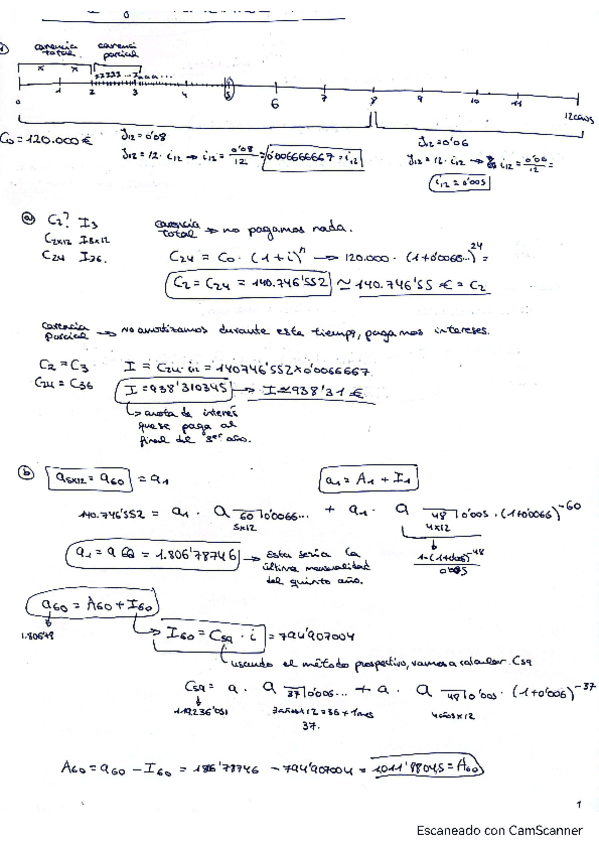 carencia total
carencia parcial
0 1 2 3 4 5 6 7 8 9 10 11 12 años
C₀ = 120.000 €
J₁₂ = 0'08
J₁₂ = 12 · i₁₂ → i₁₂ = 0'08/12 = 0'006666667 = i₁₂
J₁₂ = 0'06
J₁₂ = 12 · i₁₂ → i₁₂ = 0'06/12 =
i₁₂ = 0'005
a) C₂? I₃
C₂ₓ₁₂ I₃ₓ₁₂
C₂₄ I₃₆.
carencia total → no pagamos nada.
C₂₄ = C₀ · (1+i)ⁿ → 120.000 · (1+0'0066...)²⁴ =
C₂ = C₂₄ = 140.746'552 ≃ 140.746'55 € = C₂
carencia parcial → no amortizamos durante este tiempo, pagamos intereses.
C₂ = C₃
C₂₄ = C₃₆
I = C₂₄ · i₁₂ = 140746'552 x 0'0066667
I = 938'310345 → I ≃ 938'31 €
↳ cuota de interés que se paga al final del 3er año.
b) a₅ₓ₁₂ = a₆₀ = a₁
a₁ = A₁ + I₁
140.746'552 = a₁ · a 60⌉0'0066... + a₁ · a 48⌉0'005 · (1+0'0066)⁻⁶⁰
5x12
4x12
1-(1+0'005)⁻⁴⁸ / 0'005
a₁ = a₆₀ = 1.806'78746 → Esta sería la última mensualidad del quinto año.
a₆₀ = A₆₀ + I₆₀
1.806'78
I₆₀ = C₅₉ · i = 794'907004
↳ usando el método prospectivo, vamos a calcular C₅₉
C₅₉ = a · a 37⌉0'006... + a · a 48⌉0'005 · (1+0'006)⁻³⁷
119236'051
3 años x 12 = 36 + 1 mes
37.
4 años x 12
A₆₀ = a₆₀ - I₆₀ = 1806'78746 - 794'907004 = 1011'88045 = A₆₀
1
Escaneado con CamScanner